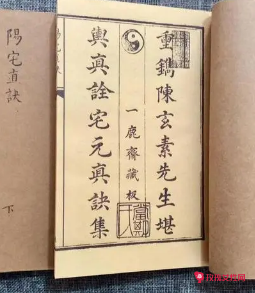 重鐫陳玄素先生堪
一鹿齋藏板
輿真詮宅元真訣集
陽宅直訣
下